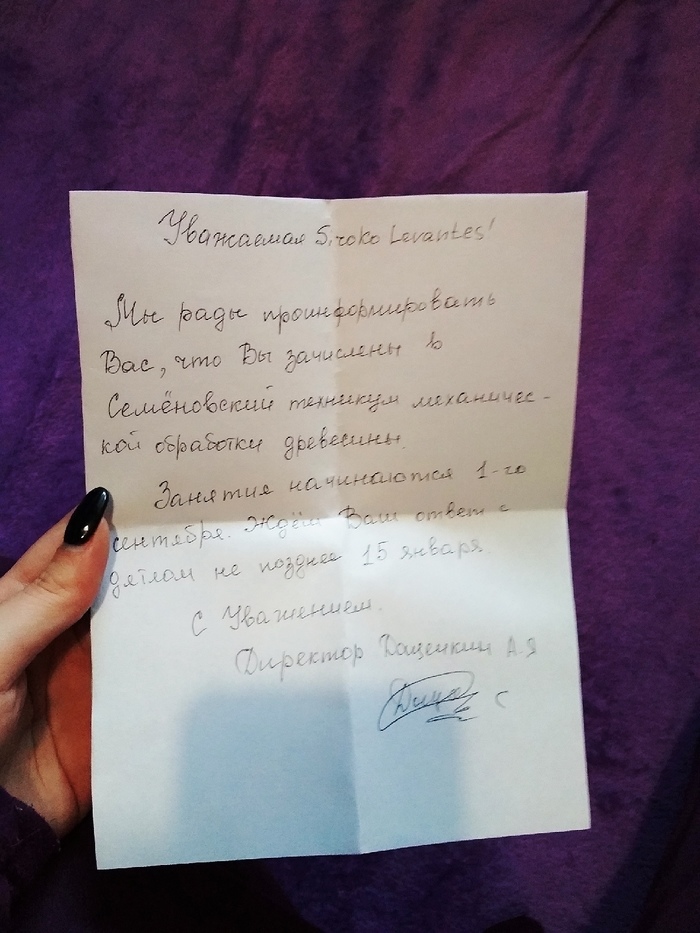 Уважаемая Siroko Levantes!
Мы рады проинформировать
Вас, что Вы зачислены в
Семёновский техникум механичес-
кой обработки древесины.
Занятия начинаются 1-го
сентября. Ждём Ваш ответ с
дятлом не позднее 15 января.
С Уважением.
Директор Дощечкин А.Я